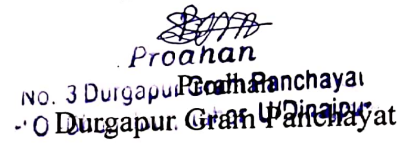 Proahan
No. 3 Durgapur Gram Panchayat
Pradhan
Durgapur Gram Panchayat